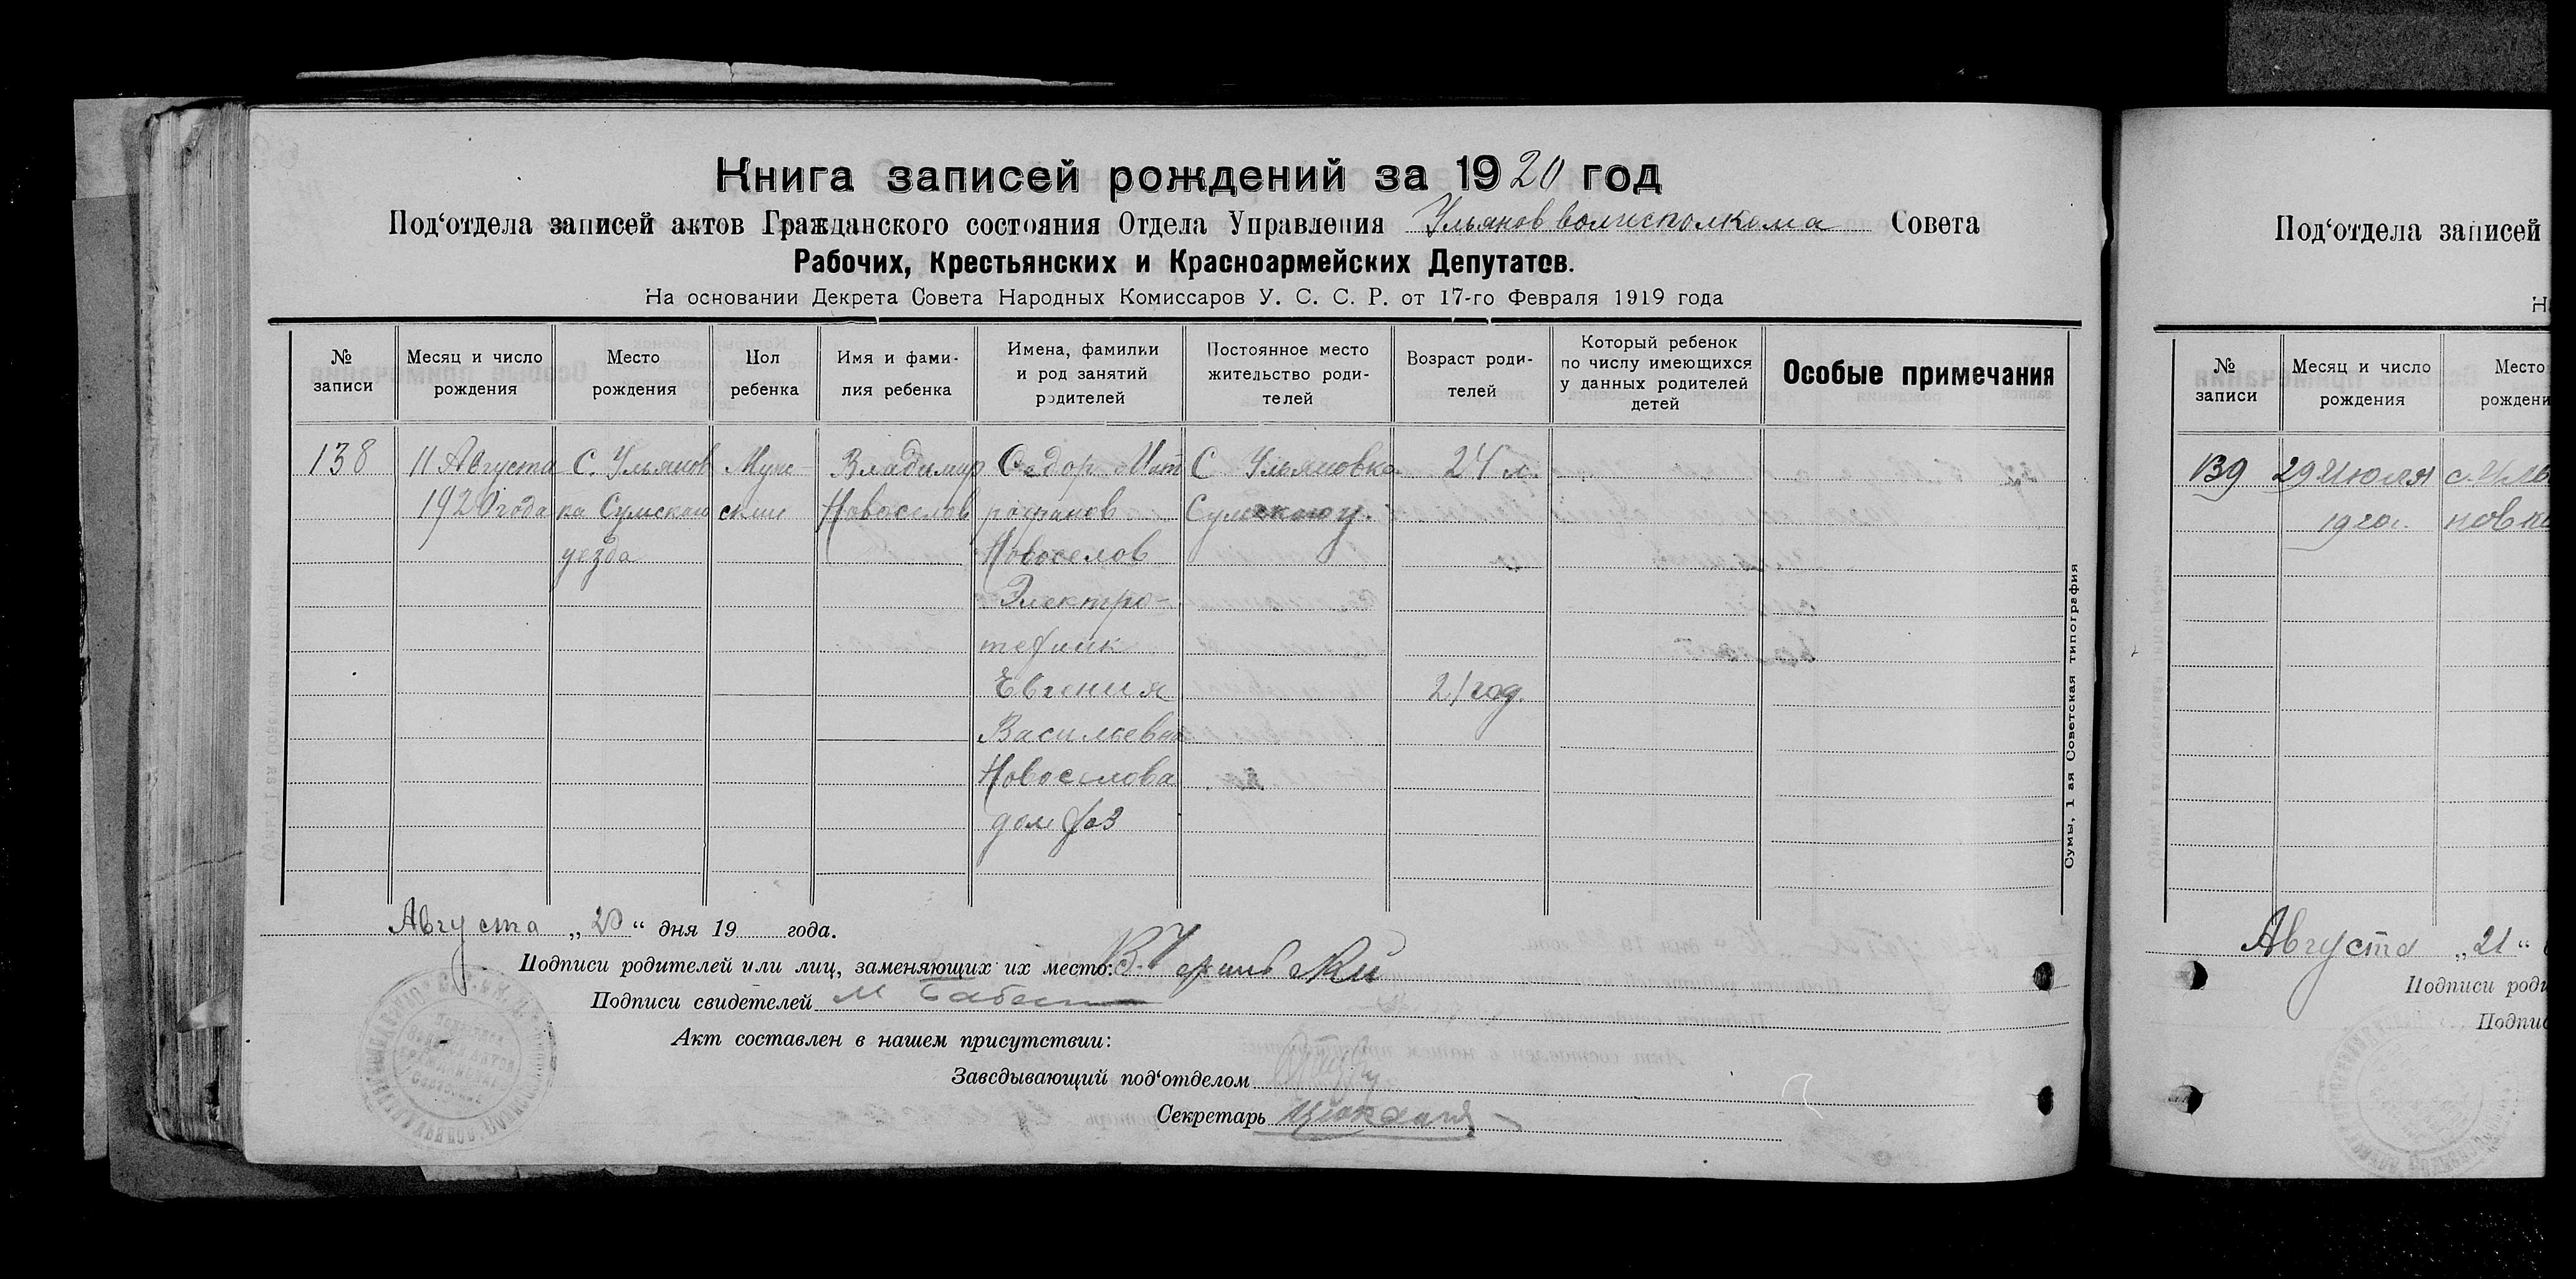 Книга записей рождений за 1920 год
Под‘отдела записей актов Гражданского состояния Отдела Управления Ульянов волисполкома Совета
Рабочих, Крестьянских и Красноармейских Депутатов.
На основании Декрета Совета Народных Комиссаров У. С. С. Р. от 17-го Февраля 1919 года
№ записи
Месяц и число рождения
Место рождения
Пол ребенка
Имя и фами-
лия ребенка
Имена, фамилки
и род занятий
родителей
Постоянное место
жительство роди-
телей
Возраст роди-
телей
Который ребенок
по числу имеющихся
у данных родителей
детей
Особые примечания
138
11 Августа
1920 года
С. Ульянов
ка Сумскаи
уезда
Муж
ский
Владимир
Новоселов
Федор Мит
рофанов
Новоселов
Электро-
техник
Евгения
Васильевна
Новоселова
дом хоз
С Ульяновка
Сумского у.
24 л.
21 год.
Сумы, 1 ая Советская типография
Августа „20“ дня 19 года.
Подписи родителей или лиц, заменяющих их место: В.
Подписи свидетелей М
Акт составлен в нашем присутствии:
Заведывающий под‘отделом
Секретарь
Под‘отдела записей
Н
№ записи
Месяц и число рождения
Место
рождени
139
29 Июля
1920 г.
с. Улья
новка
Августа „21“
Подписи роди
Подпис